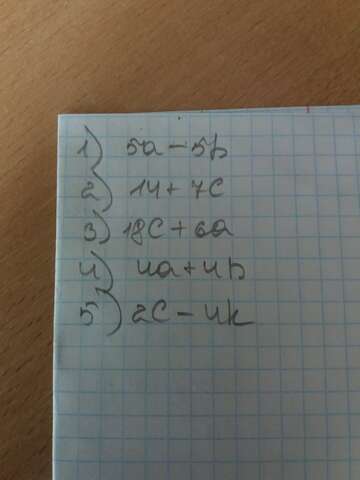 1) 5a - 5b
2) 14 + 7c
3) 18c + 6a
4) 4a + 4b
5) 2c - 4k